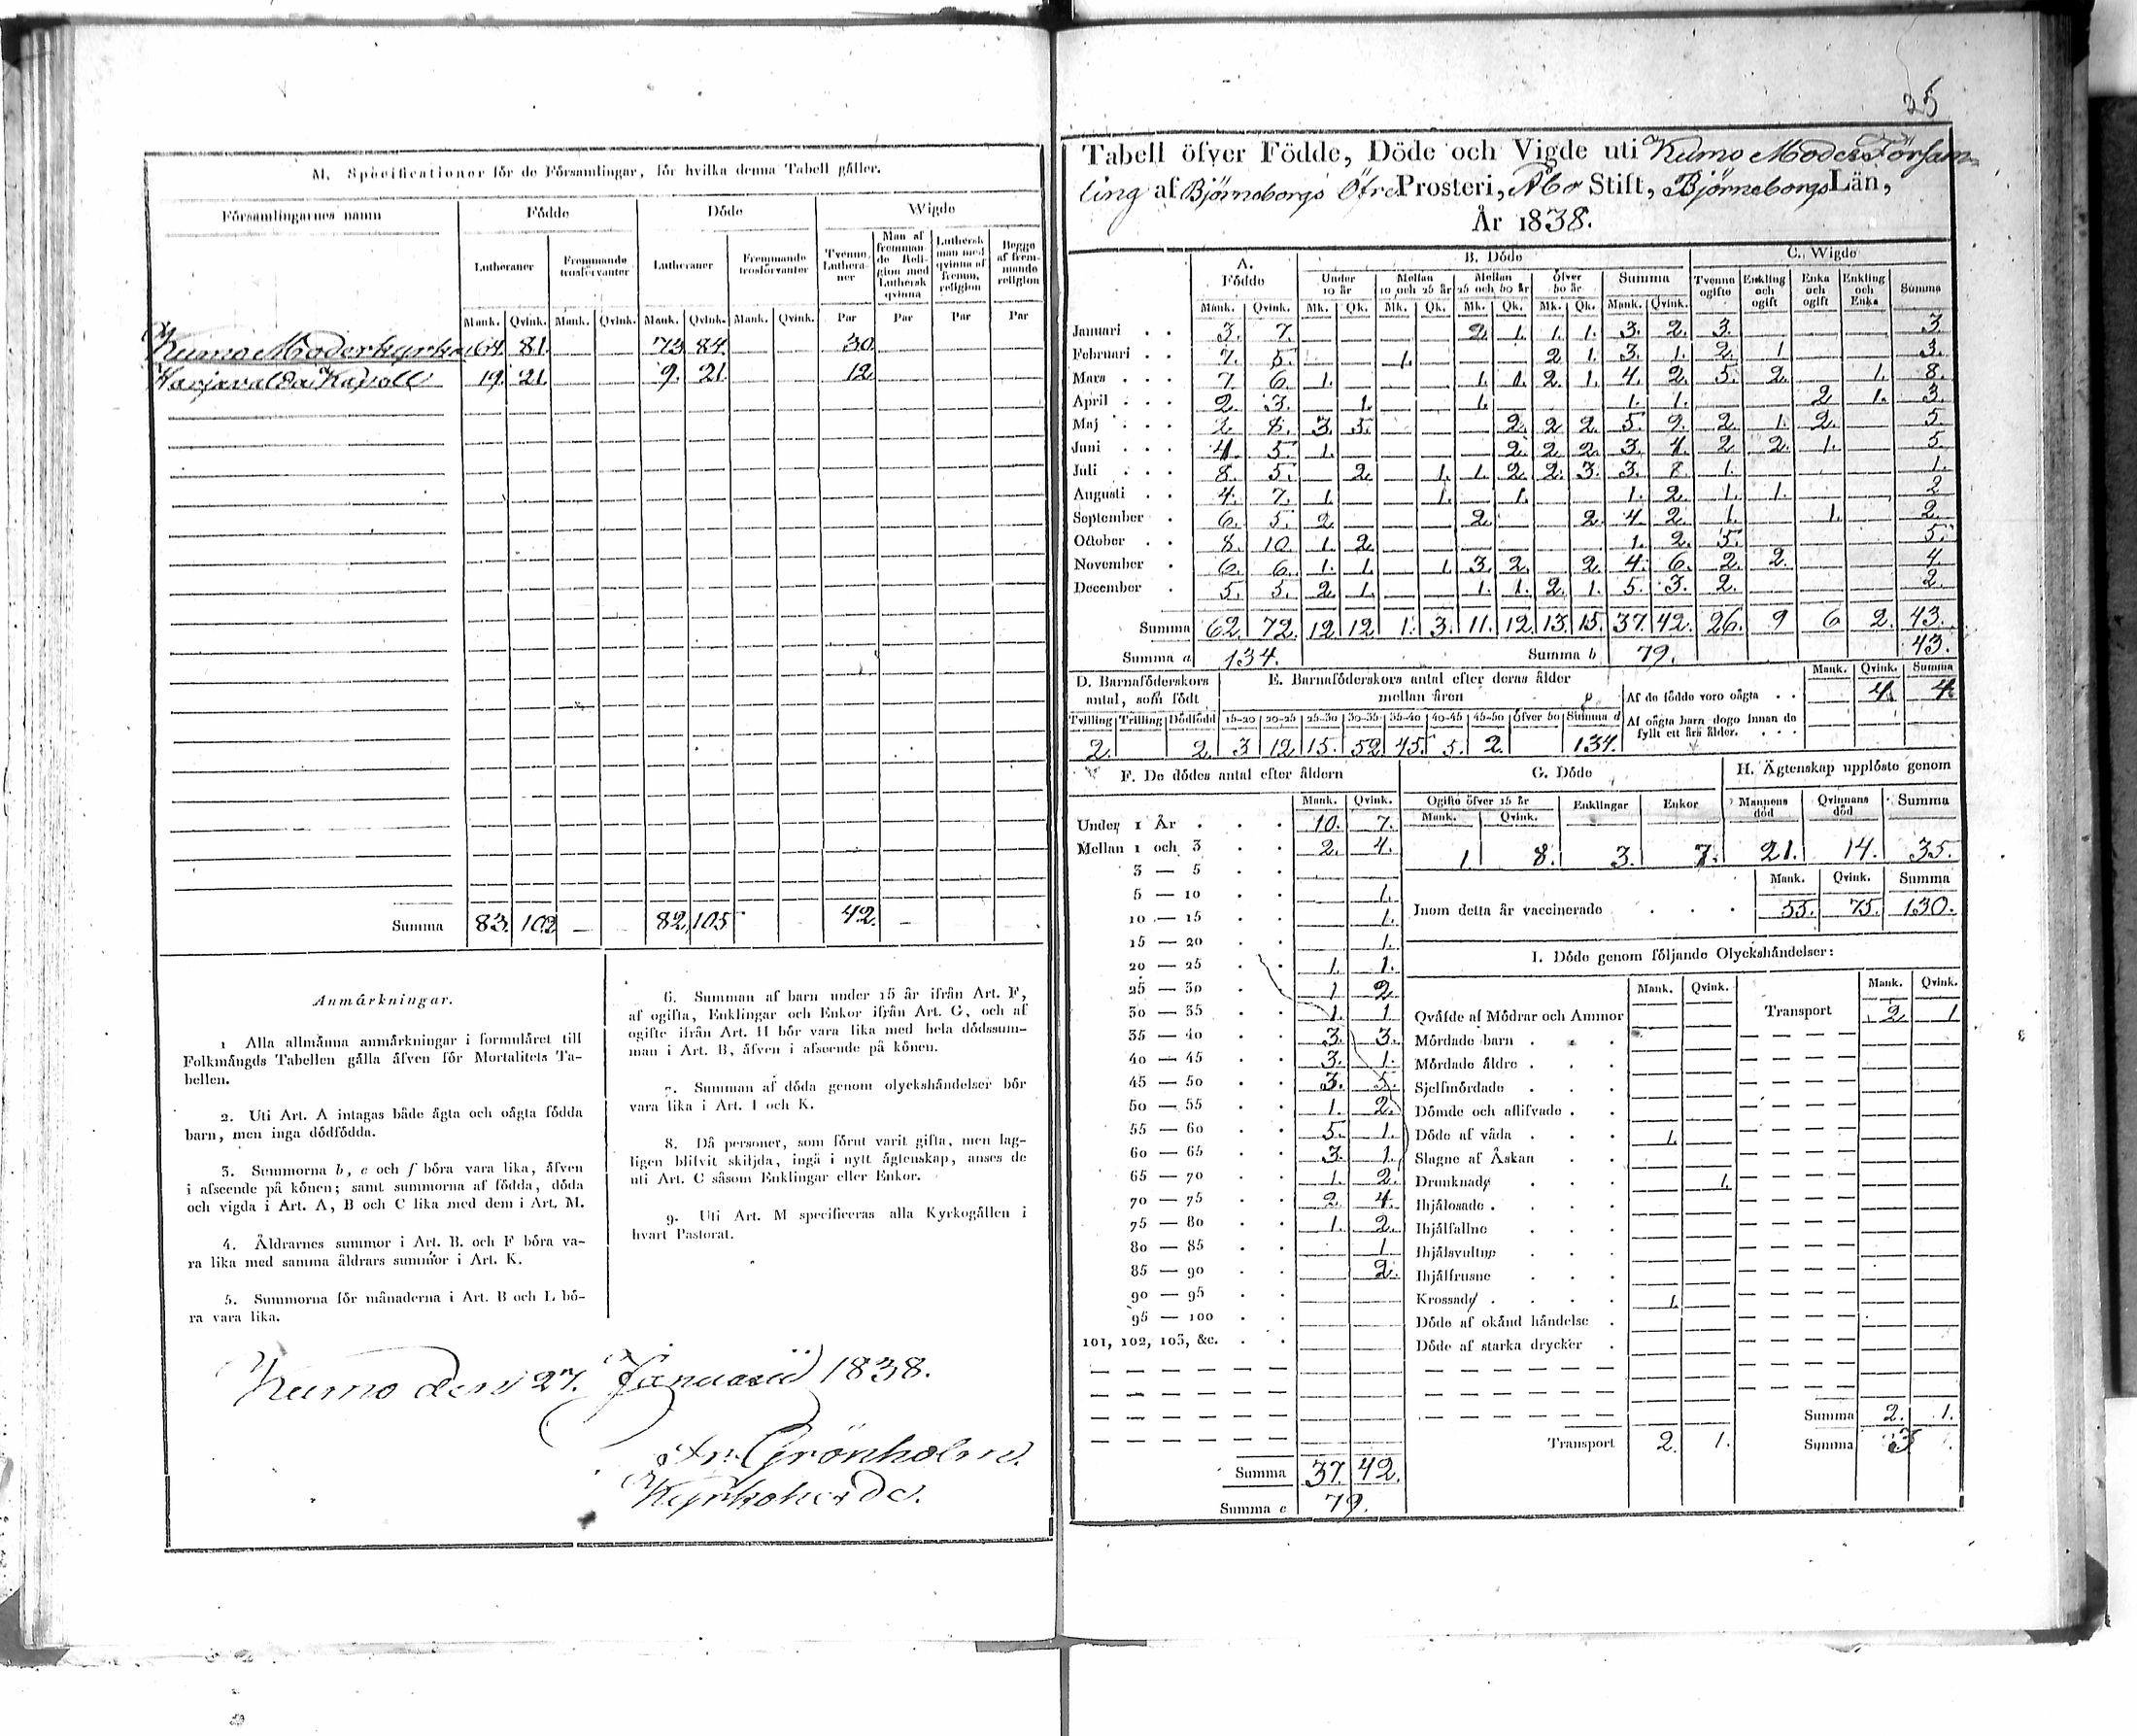 M. Specificationer för de Församlingar, för hvilka denna Tabell gäller.
Församlingarnes namn | Födde | Döde | Wigde
Lutheraner | Fremmande trosförvanter | Lutheraner | Fremmande trosförvanter | Tvenne Lutheraner | Man af fremmande Religion med Luthersk qvinna | Luthersk man med qvinna af fremm. religion | Begge af fremmande religion
Mank. | Qvink. | Mank. | Qvink. | Mank. | Qvink. | Mank. | Qvink. | Par | Par | Par | Par
Kumo Moderkyrka 64. 81. 73 84. 30.
Harjavalda Kapell 19. 21. 9. 21. 12.
Summa 83. 102 — 82, 105 42. —
Anmärkningar.
1 Alla allmänna anmärkningar i formuläret till
Folkmängds Tabellen gälla äfven för Mortalitets Ta-
bellen.
2. Uti Art. A intagas både ägta och oägta födda
barn, men inga dödfödda.
3. Summorna b, c och f böra vara lika, äfven
i afseende på könen; samt summorna af födda, döda
och vigda i Art. A, B och C lika med dem i Art. M.
4. Åldrarnes summor i Art. B. och F böra va-
ra lika med samma åldrars summor i Art. K.
5. Summorna för månaderna i Art. B och L bö-
ra vara lika.
6. Summan af barn under 15 år ifrån Art. F,
af ogifta, Enklingar och Enkor ifrån Art. G, och af
ogifte ifrån Art. H bör vara lika med hela dödssum-
man i Art. B, äfven i afseende på könen.
7. Summan af döda genom olyckshändelser bör
vara lika i Art. I och K.
8. Då personer, som förut varit gifta, men lag-
ligen blifvit skiljda, ingå i nytt ägtenskap, anses de
uti Art. C såsom Enklingar eller Enkor.
9. Uti Art. M specificeras alla Kyrkogällen i
hvart Pastorat.
Kumo den 27. Januarii 1838.
Grönholm.
Kyrkoherde.
25
Tabell öfver Födde, Döde och Vigde uti Kumo Moder Försam-
ling af Björneborgs Öfre Prosteri, Åbo Stift, Björneborgs Län,
År 1838.
A. Födde | B. Döde | C. Wigde
Under 10 år | Mellan 10 och 25 år | Mellan 25 och 50 år | Öfver 50 år | Summa | Tvenne ogifte | Enkling och ogift | Enka och ogift | Enkling och Enka | Summa
Mank. | Qvink. | Mk. | Qk. | Mk. | Qk. | Mk. | Qk. | Mk. | Qk. | Mank. | Qvink.
Januari 3. 7. 2. 1. 1. 1. 3. 2. 3. 3
Februari 7. 5. 1. 2 1. 3. 1. 2. 1 3.
Mars 7 6. 1. 1. 1. 2. 1. 4. 2. 5. 2. 1. 8.
April 2. 3. 1. 1. 1. 1. 2 1. 3.
Maj 2. 8. 3. 5. 2. 2 2. 5. 9. 2. 1. 2. 5.
Juni 4. 5. 1. 2. 2. 2. 3. 4. 2 2. 1. 5.
Juli 8. 5. 2. 1. 1. 2. 2. 3. 3. 8. 1. 1.
Augusti 4. 7. 1. 1. 1. 1. 2. 1. 1. 2
September 6. 5. 2. 2. 2. 4. 2. 1. 1. 2.
October 8. 10. 1. 2. 1. 2. 5. 5.
November 6. 6. 1. 1. 1. 3. 2. 2. 4. 6. 2. 2. 4.
December 5. 5. 2 1. 1. 1. 2. 1. 5. 3. 2. 2.
Summa 62 72. 12 12 1. 3. 11. 12 13. 15. 37. 42. 26. 9 6 2. 43.
Summa a 134. Summa b 79. 43.
D. Barnaföderskors antal, som födt | E. Barnaföderskors antal efter deras ålder mellan åren | Mank. | Qvink. | Summa
Tvilling | Trilling | Dödfödd | 15-20 | 20-25 | 25-30 | 30-35 | 35-40 | 40-45 | 45-50 | Öfver 50 | Summa d
2. 2. 3 12 15. 52 45. 5. 2. 134.
Af de födde voro oägta 4. 4.
Af oägta barn dogo innan de
fyllt ett års ålder.
F. De dödes antal efter åldern
Mank. Qvink.
Under 1 År 10. 7.
Mellan 1 och 3 2. 4.
3 — 5
5 — 10 1.
10 — 15 1.
15 — 20 1.
20 — 25 1. 1.
25 — 30 1 2
30 — 35 1. 1
35 — 40 3. 3.
40 — 45 3. 1.
45 — 50 3. 5.
50 — 55 1. 2.
55 — 60 5. 1.
60 — 65 3. 1.
65 — 70 1. 2.
70 — 75 2. 4.
75 — 80 1. 2.
80 — 85 1
85 — 90 2.
90 — 95
95 — 100
101, 102, 103, &c.
Summa 37. 42.
Summa c 79.
G. Döde
Ogifte öfver 15 år | Enklingar | Enkor
Mank. | Qvink.
1. 8. 3. 7.
H. Ägtenskap upplöste genom
Mannens död | Qvinnans död | Summa
21. 14. 35.
Mank. | Qvink. | Summa
Inom detta år vaccinerade 55. 75. 130.
I. Döde genom följande Olyckshändelser:
Mank. | Qvink. | Mank. | Qvink.
Qväfde af Mödrar och Ammor
Mördade barn
Mördade äldre
Sjelfmördade
Dömde och aflifvade
Döde af våda 1.
Slagne af Åskan
Drunknade 1.
Ihjälosade
Ihjälfallne
Ihjälsvultne
Ihjälfrusne
Krossade 1.
Döde af okänd händelse
Döde af starka drycker
Transport 2. 1.
Transport 2 1
Summa 2. 1.
Summa 3